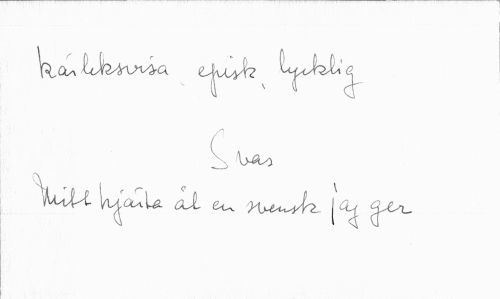 kärleksvisa, episk, lycklig
Svas
Mitt hjärta åt en svensk jag ger